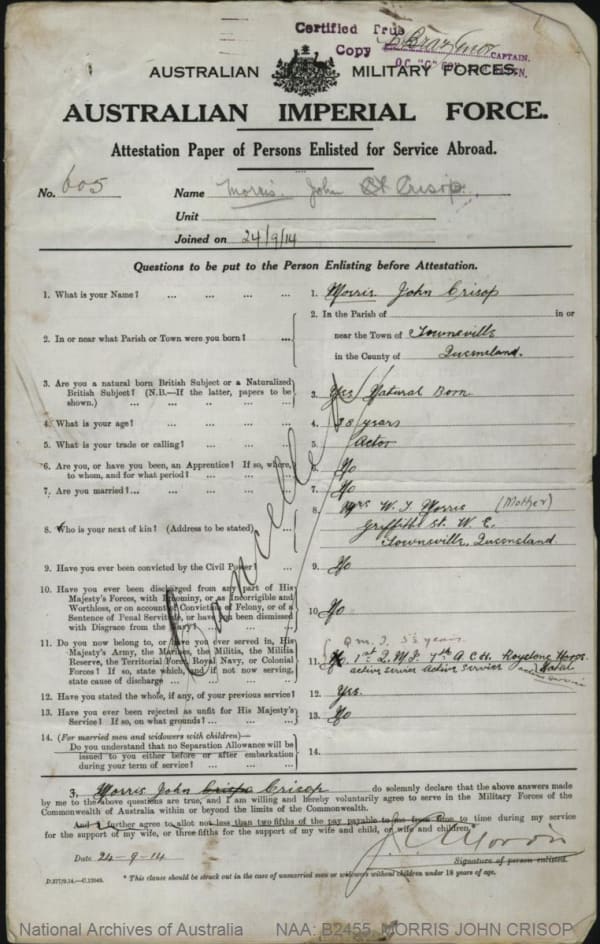 Certified True
Copy
CAPTAIN.
O.C. "G"
AUSTRALIAN MILITARY FORCES.
AUSTRALIAN IMPERIAL FORCE.
Attestation Paper of Persons Enlisted for Service Abroad.
No. 605 Name Morris. John Crisop.
Unit
Joined on 24/9/14
Questions to be put to the Person Enlisting before Attestation.
1. What is your Name? ... ... ... ... 1. Morris John Crisop
2. In or near what Parish or Town were you born? ... 2. In the Parish of in or
near the Town of Townsville
in the County of Queensland.
3. Are you a natural born British Subject or a Naturalized
British Subject? (N.B.—If the latter, papers to be
shown.) ... ... ... ... ... 3. Yes Natural Born
4. What is your age? ... ... ... ... 4. 38 years
5. What is your trade or calling? ... ... ... 5. Actor
6. Are you, or have you been, an Apprentice? If so, where,
to whom, and for what period? ... ... ... 6. No
7. Are you married? ... ... ... ... 7. No
8. Who is your next of kin? (Address to be stated) ... 8. Mrs W. J. Morris (Mother)
Griffith St. W. E.
Townsville, Queensland
9. Have you ever been convicted by the Civil Power? 9. No
10. Have you ever been discharged from any part of His
Majesty's Forces, with Ignominy, or as Incorrigible and
Worthless, or on account of Conviction of Felony, or of a
Sentence of Penal Servitude, or have you been dismissed
with Disgrace from the Navy? ... 10. No
11. Do you now belong to, or have you ever served in, His
Majesty's Army, the Marines, the Militia, the Militia
Reserve, the Territorial Force, Royal Navy, or Colonial
Forces? If so, state which, and if not now serving,
state cause of discharge ... ... Q.M.I. 5½ years
11. 1st Q.M.I. 7th A.C.H. Roystons Horse
active service active service Natal
12. Have you stated the whole, if any, of your previous service? 12. Yes.
13. Have you ever been rejected as unfit for His Majesty's
Service? If so, on what grounds? ... ... 13. No
14. (For married men and widowers with children)—
Do you understand that no Separation Allowance will be
issued to you either before or after embarkation
during your term of service? ... ... ... 14.
Cancelled
I, Morris John Crisop do solemnly declare that the above answers made
by me to the above questions are true, and I am willing and hereby voluntarily agree to serve in the Military Forces of the
Commonwealth of Australia within or beyond the limits of the Commonwealth.
And I further agree to allot not less than two fifths of the pay payable to me from time to time during my service
for the support of my wife, or three fifths for the support of my wife and child, or wife and children.*
Date 24-9-14 J. C. Morris
Signature of person enlisted.
* This clause should be struck out in the case of unmarried men or widowers without children under 18 years of age.
National Archives of Australia NAA: B2455, MORRIS JOHN CRISOP